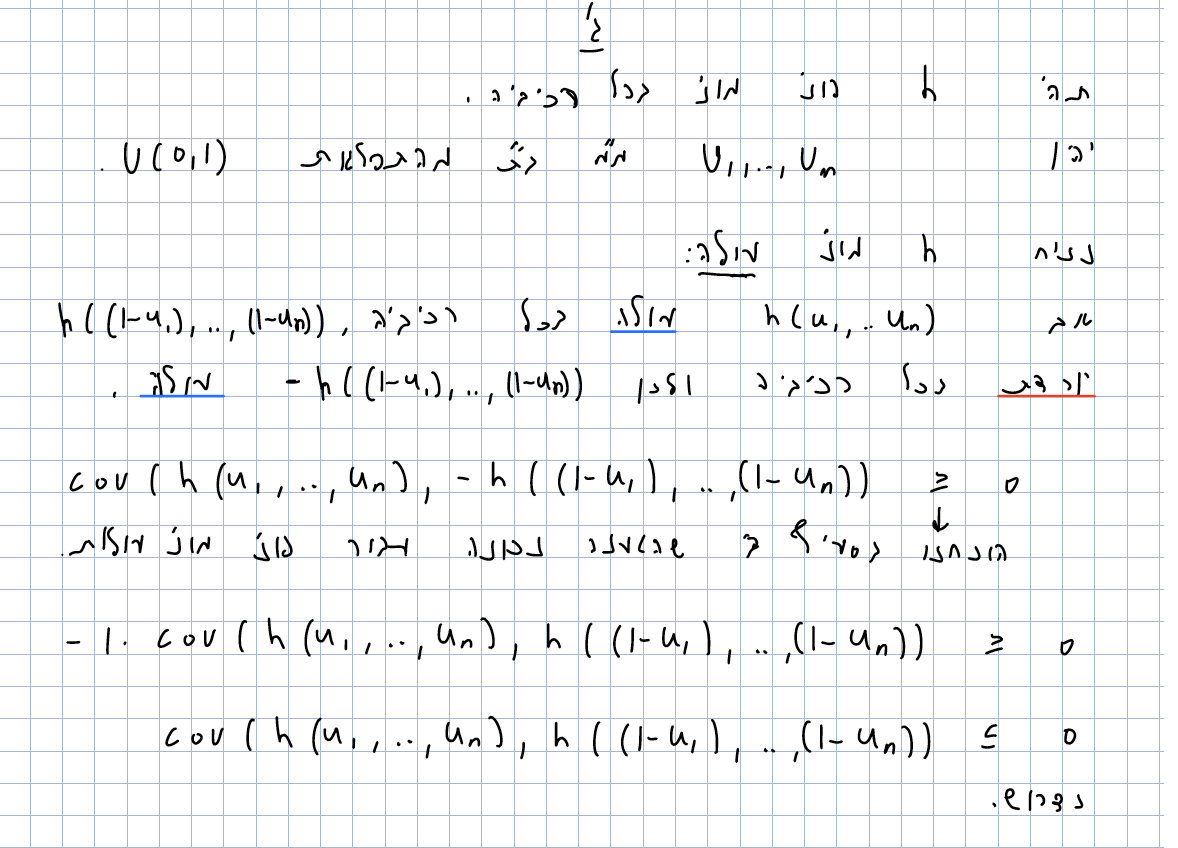 ג'
תהי h פונ' מונ' בכל רכיביה.
יהיו U₁,..,Uₙ מ"מ ב"ת מהתפלגות U(0,1).
נניח h מונ' עולה:
אם h(u₁,..uₙ) עולה בכל רכיביה, h((1-u₁),..,(1-uₙ))
יורדת בכל רכיביה ולכן -h((1-u₁),..,(1-uₙ)) עולה.
cov(h(u₁,..,uₙ), -h((1-u₁),..,(1-uₙ)) ≥ 0
↓
הוכחנו בסעיף ב שהטענה נכונה עבור פונ' מונ' עולות.
-1. cov(h(u₁,..,uₙ), h((1-u₁),..,(1-uₙ)) ≥ 0
cov(h(u₁,..,uₙ), h((1-u₁),..,(1-uₙ)) ≤ 0
כנדרש.